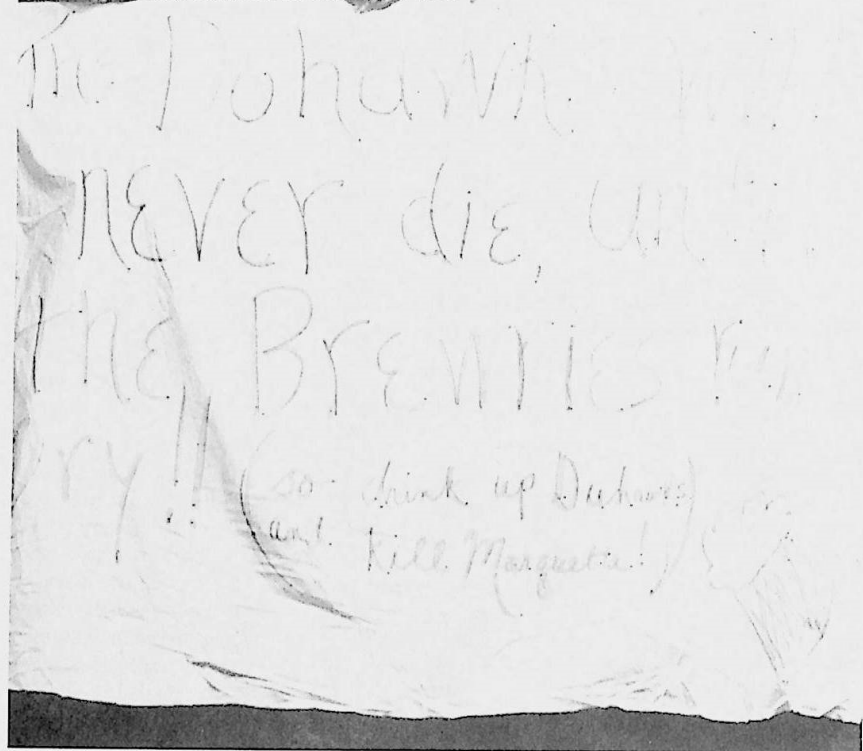 The Duhawk will
never die, until
the Brewries run
dry!! (so drink up Duhawks
and kill Marquette!)